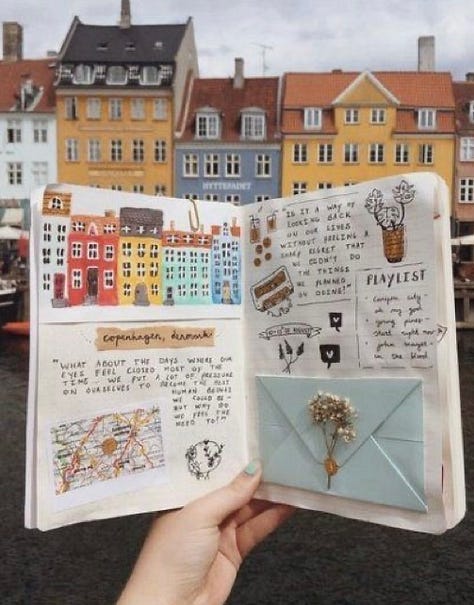 HYTTEFADET
copenhagen, denmark
"WHAT ABOUT THE DAYS WHERE OUR
EYES FEEL CLOSED MOST OF THE
TIME... WE PUT A LOT OF PRESSURE
ON OURSELVES TO BECOME THE BEST
HUMAN BEINGS
WE COULD BE -
BUT WHY DO
WE FEEL THE
NEED TO?"
IS IT A WAY OF
LOOKING BACK
ON OUR LIVES
WITHOUT FEELING A
REGRET THAT
WE DIDN'T DO
THE THINGS
WE PLANNED
ON DOING?"
PLAYLIST
city
oh my god
young pines
start right now
john mayer
in the blood